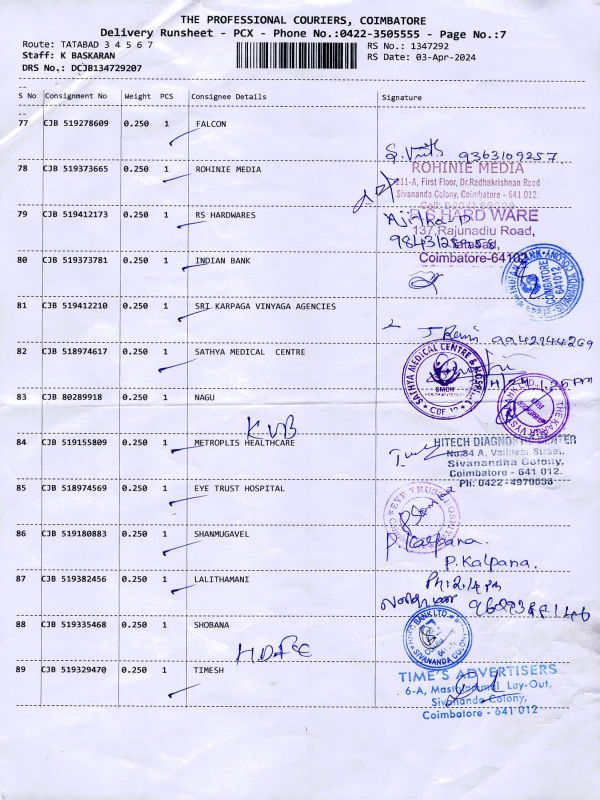 THE PROFESSIONAL COURIERS, COIMBATORE
Delivery Runsheet - PCX - Phone No.:0422-3505555 - Page No.:7
Route: TATABAD 3 4 5 6 7
RS No.: 1347292
Staff: K BASKARAN
RS Date: 03-Apr-2024
DRS No.: DCJB134729207
S No Consignment No Weight PCS Consignee Details Signature
77 CJB 519278609 0.250 1 FALCON
9363109257
78 CJB 519373665 0.250 1 ROHINIE MEDIA
ROHINIE MEDIA
211-A, First Floor, Dr.Radhakrishnan Road
Sivananda Colony, Coimbatore - 641 012.
79 CJB 519412173 0.250 1 RS HARDWARES
Ajitha P
R S HARD WARE
137,Rajunadiu Road,
Tatabad,
Coimbatore-641012
80 CJB 519373781 0.250 1 INDIAN BANK
COIMBATORE
641012
81 CJB 519412210 0.250 1 SRI KARPAGA VINYAGA AGENCIES
9942144269
82 CJB 518974617 0.250 1 SATHYA MEDICAL CENTRE
SATHYA MEDICAL CENTRE & HOSPITAL
SMCH
CBE 12
1.25 PM
83 CJB 80289918 0.250 1 NAGU
KVB
THE KARUR VYSYA BANK LTD
84 CJB 519155809 0.250 1 METROPLIS HEALTHCARE
HITECH DIAGNOSTIC CENTER
Sivanandha Colony,
Coimbatore - 641 012.
Ph: 0422-4970038
85 CJB 518974569 0.250 1 EYE TRUST HOSPITAL
86 CJB 519180883 0.250 1 SHANMUGAVEL
P. Kalpana.
P. Kalpana.
87 CJB 519382456 0.250 1 LALITHAMANI
88 CJB 519335468 0.250 1 SHOBANA
HDFC
HDFC BANK LTD.
SIVANANDA COLONY
89 CJB 519329470 0.250 1 TIMESH
TIME'S ADVERTISERS
Sivananda Colony,
Coimbatore - 641 012